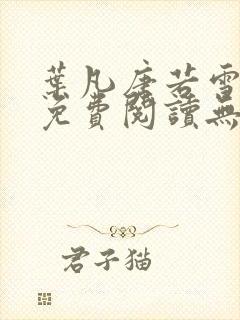 葉凡唐若雪
免費閱讀無
君子猫